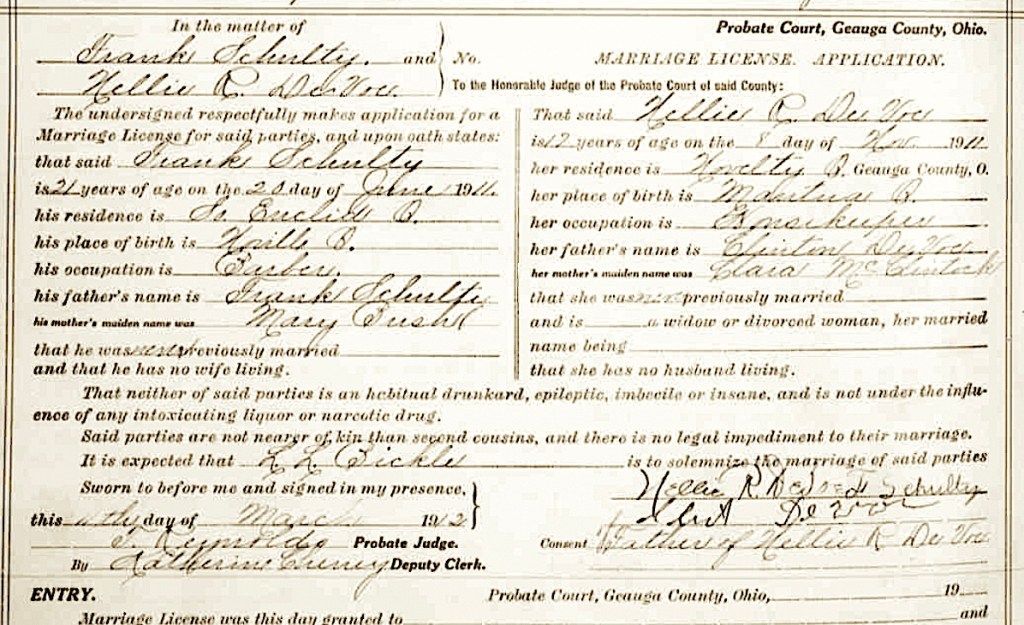 In the matter of
Probate Court, Geauga County, Ohio.
Frank Schulty. and
No. MARRIAGE LICENSE. APPLICATION.
Nellie R. De Voe
To the Honorable Judge of the Probate Court of said County:
The undersigned respectfully makes application for a
Marriage License for said parties, and upon oath states:
that said Frank Schulty
is 21 years of age on the 20 day of June 1911.
his residence is So. Euclid O.
his place of birth is O.
his occupation is Barber.
his father's name is Frank Schulty
his mother's maiden name was Mary
that he was never previously married
and that he has no wife living.
That said Nellie R. De Voe
is 17 years of age on the 8 day of Nov. 1911.
her residence is Novelty O. Geauga County, O.
her place of birth is Mantua O.
her occupation is Housekeeper
her father's name is Clinton De Voe
her mother's maiden name was Clara McClintock
that she was never previously married
and is a widow or divorced woman, her married
name being
that she has no husband living.
That neither of said parties is an habitual drunkard, epileptic, imbecile or insane, and is not under the influ-
ence of any intoxicating liquor or narcotic drug.
Said parties are not nearer of kin than second cousins, and there is no legal impediment to their marriage.
It is expected that L L Bickle is to solemnize the marriage of said parties
Sworn to before me and signed in my presence.
Nellie R. De Voe F Schulty
this day of March 1912
De Voe
Reynolds Probate Judge.
Consent Father of Nellie R De Voe
By Katherine Deputy Clerk.
ENTRY.
Probate Court, Geauga County, Ohio, 19
Marriage License was this day granted to and